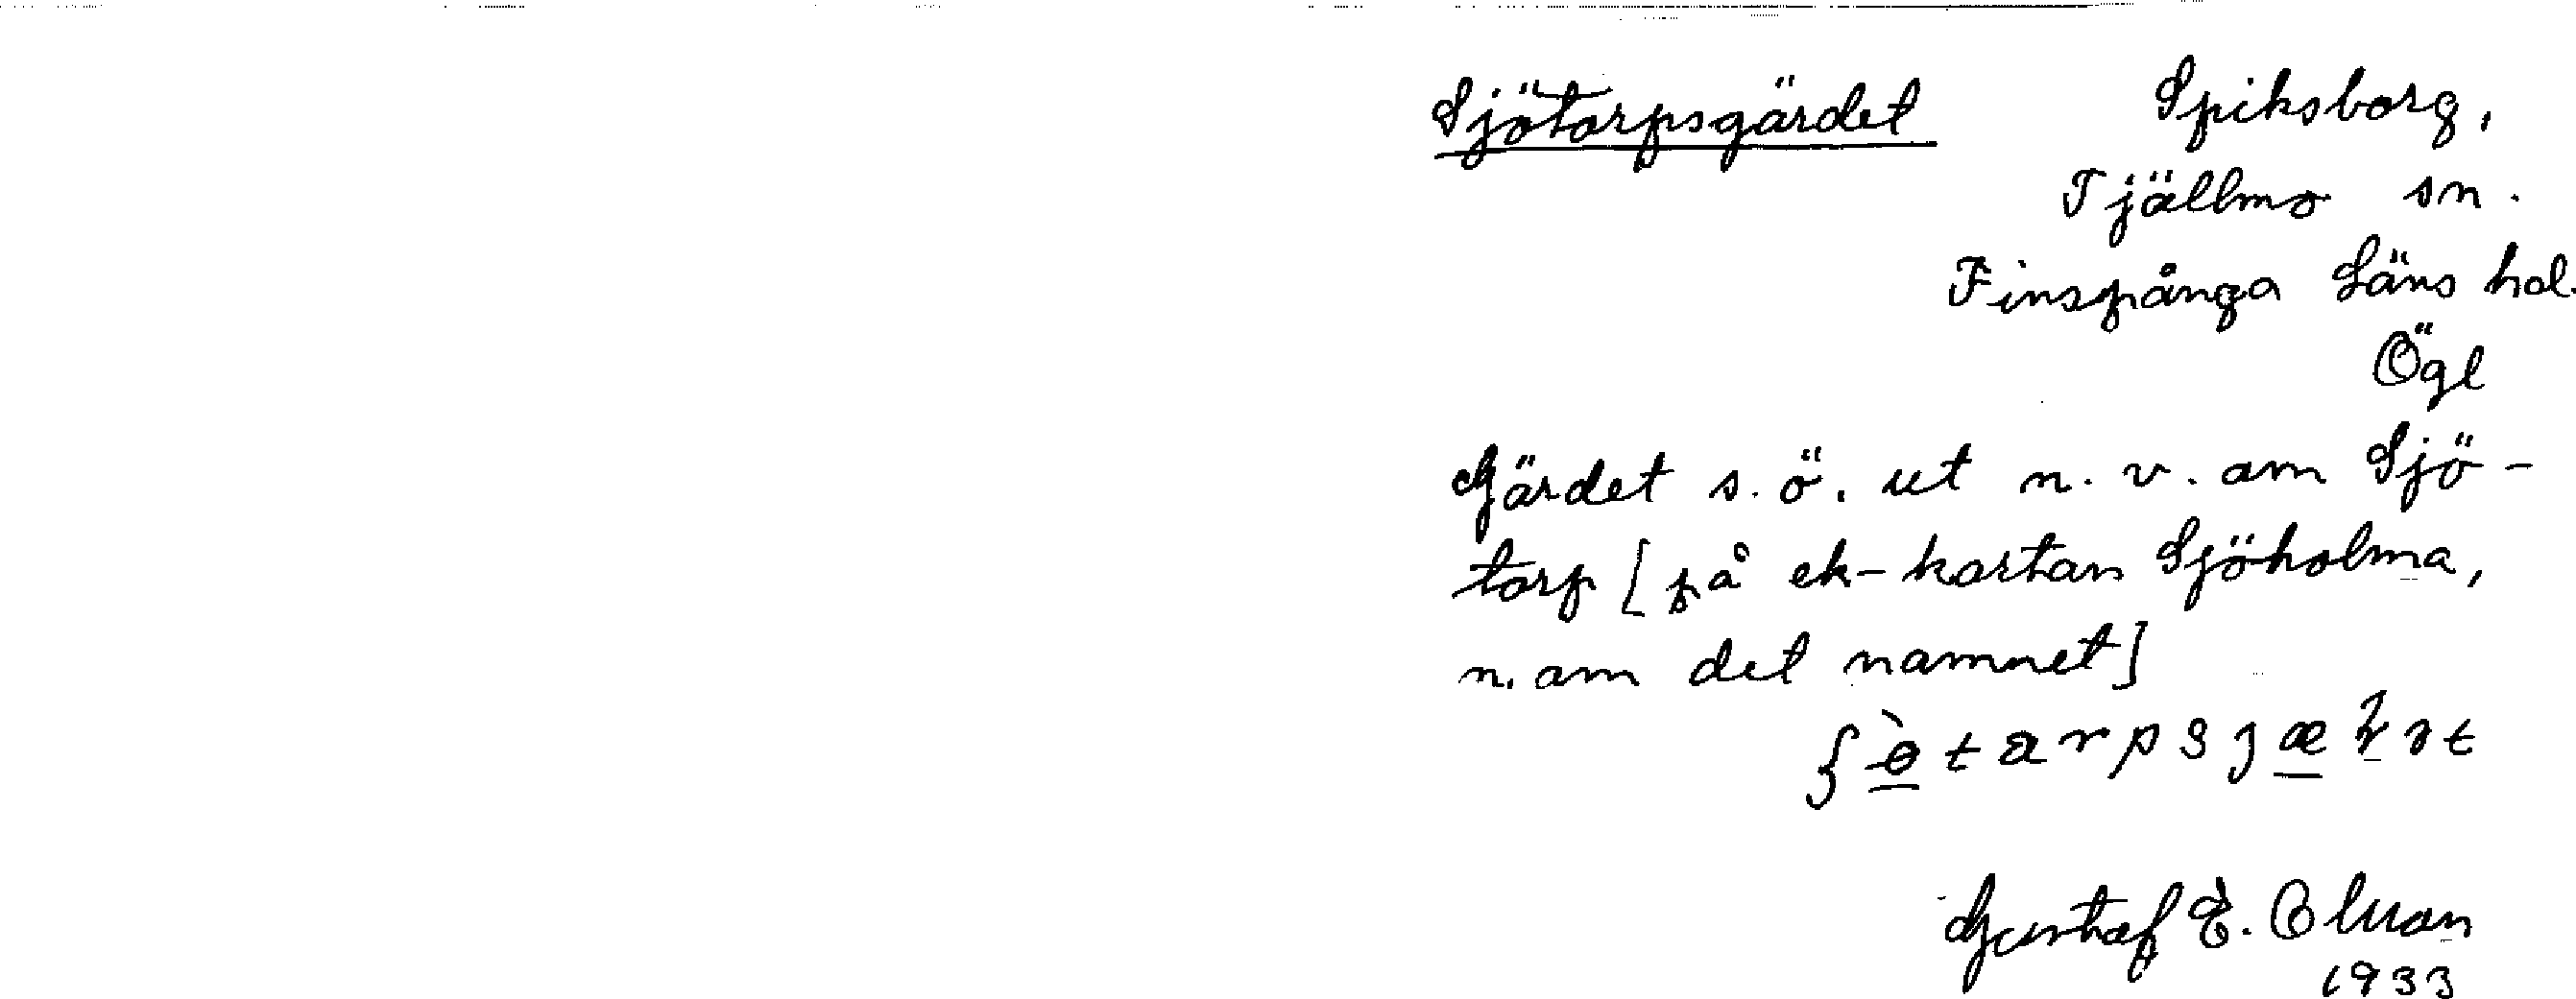 Sjötorpsgärdet Spiksborg,
Tjällmo sn.
Finspånga Läns hd.
Ögl
Gärdet s.ö. ut n.v. om Sjö-
torp [på ek-kartan Sjöholma,
n. om det namnet]
Gustaf E. Olsson
1933